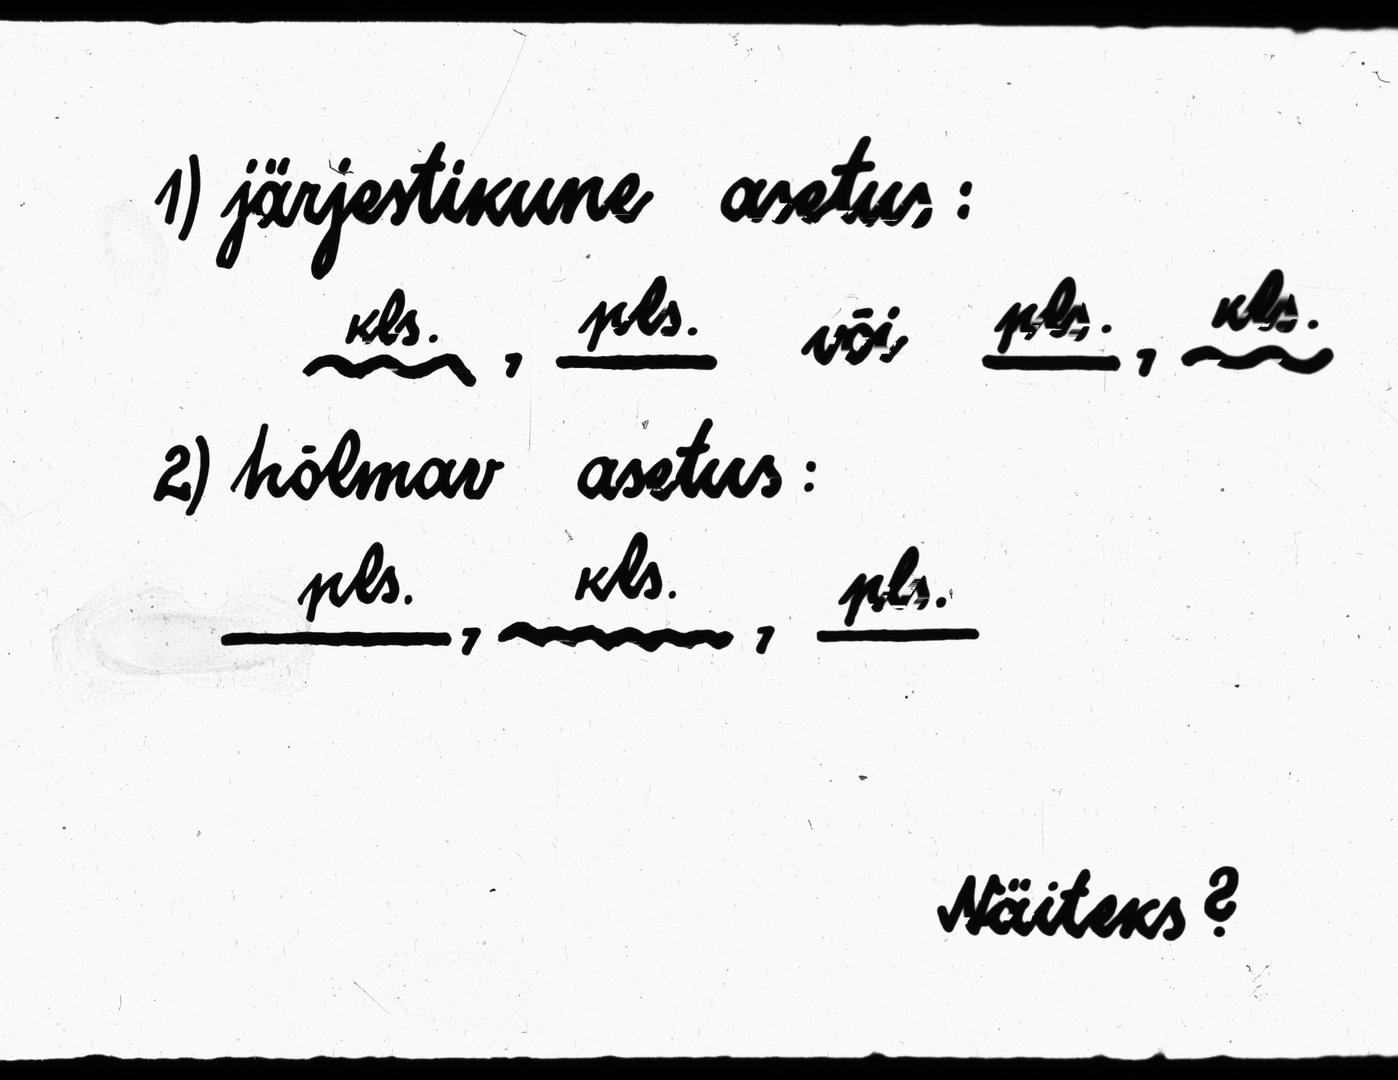 1) järjestikune asetus:
kls. , pls. või pls. , kls.
2) hõlmav asetus:
pls. , kls. , pls.
Näiteks?